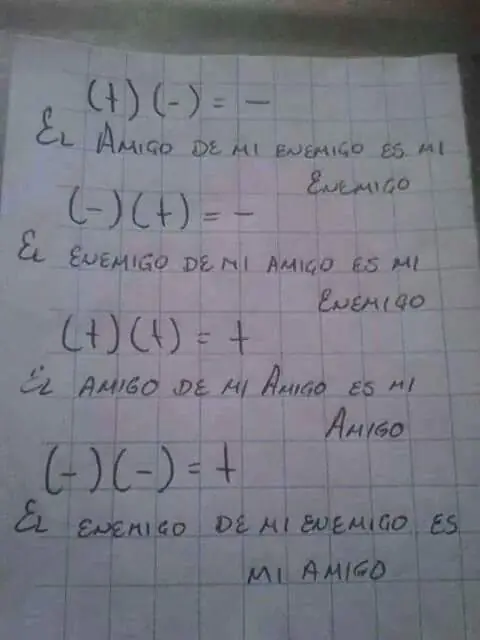 (+)(-) = -
El Amigo de mi enemigo es mi
Enemigo
(-)(+) = -
El enemigo de mi amigo es mi
Enemigo
(+)(+) = +
El amigo de mi Amigo es mi
Amigo
(-)(-) = +
El enemigo de mi enemigo es
mi amigo